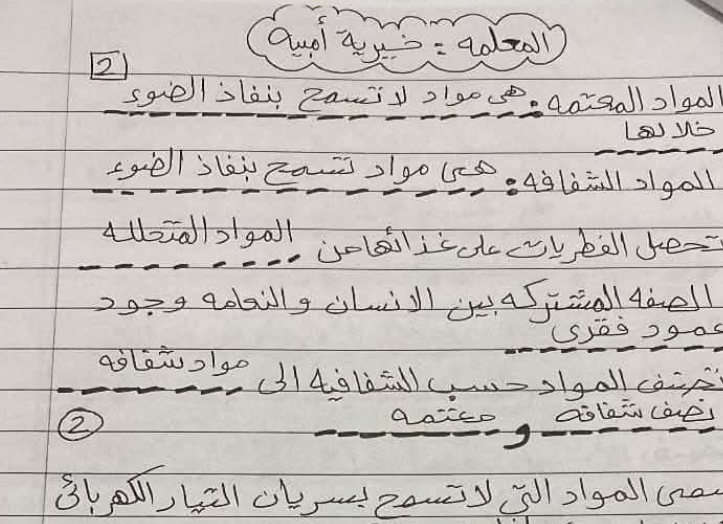 المعلمه : خيرية أمبيه
2
المواد المعتمه : هي مواد لا تسمح بنفاذ الضوء
خلالها
المواد الشفافه : هي مواد تسمح بنفاذ الضوء
تحصل الفطريات على غذائها من المواد المتحلله
الصفه المشتركه بين الانسان والنعامه وجود
عمود فقري
تصنف المواد حسب الشفافيه الى مواد شفافه
نصف شفافه و معتمه
2
المواد التي لا تسمح بسريان التيار الكهربائي